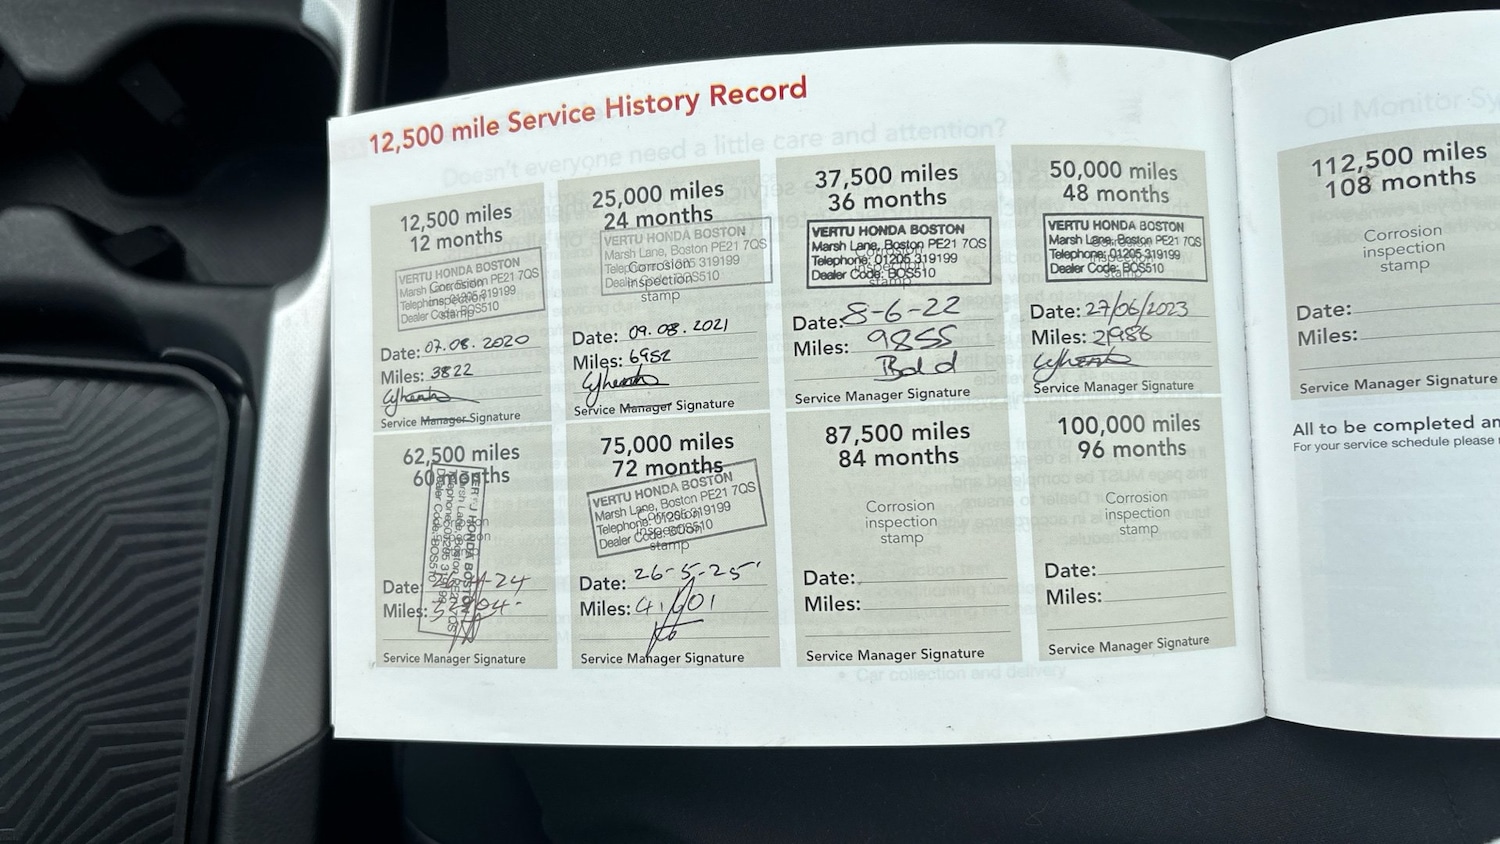 12,500 mile Service History Record
Doesn't everyone need a little care and attention?
12,500 miles
12 months
VERTU HONDA BOSTON
Marsh Lane, Boston PE21 7QS
Telephone: 01205 319199
Dealer Code: BOS510
Corrosion
inspection
stamp
Date: 07.08.2020
Miles: 3822
Service Manager Signature
25,000 miles
24 months
VERTU HONDA BOSTON
Marsh Lane, Boston PE21 7QS
Telephone: 01205 319199
Dealer Code: BOS510
Corrosion
inspection
stamp
Date: 09.08.2021
Miles: 6952
Service Manager Signature
37,500 miles
36 months
VERTU HONDA BOSTON
Marsh Lane, Boston PE21 7QS
Telephone: 01205 319199
Dealer Code: BOS510
Corrosion
inspection
stamp
Date: 8-6-22
Miles: 9855
Service Manager Signature
50,000 miles
48 months
VERTU HONDA BOSTON
Marsh Lane, Boston PE21 7QS
Telephone: 01205 319199
Dealer Code: BOS510
Corrosion
inspection
stamp
Date: 27/06/2023
Miles: 21986
Service Manager Signature
62,500 miles
60 months
VERTU HONDA BOSTON
Marsh Lane, Boston PE21 7QS
Telephone: 01205 319199
Dealer Code: BOS510
Date:
Miles:
Service Manager Signature
75,000 miles
72 months
VERTU HONDA BOSTON
Marsh Lane, Boston PE21 7QS
Telephone: 01205 319199
Dealer Code: BOS510
Corrosion
inspection
stamp
Date: 26-5-25
Miles:
Service Manager Signature
87,500 miles
84 months
Corrosion
inspection
stamp
Date:
Miles:
Service Manager Signature
100,000 miles
96 months
Corrosion
inspection
stamp
Date:
Miles:
Service Manager Signature
• Car collection and delivery
Oil Monitor Sy
112,500 miles
108 months
Corrosion
inspection
stamp
Date:
Miles:
Service Manager Signature
All to be completed an
For your service schedule please